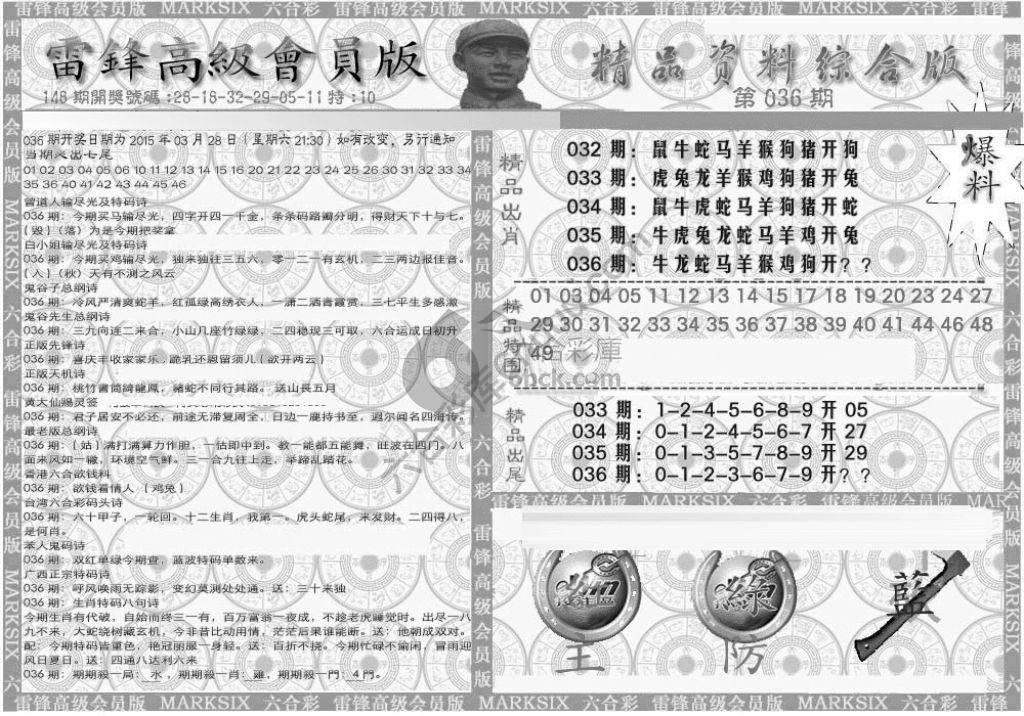 雷锋高级会员版 MARKSIX 六合彩 雷锋高级会员版 MARKSIX 六合彩 雷锋高级会员版 MARKSIX 六合彩
雷鋒高級會員版
148期開獎號碼:28-18-32-29-05-11特:10
精品资料综合版
第036期
036期开奖日期为2015年03月28日(星期六21:30)如有改变,另行通知
当期入出七尾
01 02 03 04 05 06 10 11 12 13 14 15 16 20 21 22 23 24 25 26 30 31 32 33 34
35 36 40 41 42 43 44 45 46
曾道人输尽光及特码诗
036期:今期买马输尽光,四字开四一千金,条条码路瓣分明,得财天下十与七。
(毁)(落)为是今期把奖拿
白小姐输尽光及特码诗
036期:今期买鸡输尽光,独来独往三五六,零一二一有玄机,二三两边报佳音。
(人)(秋)天有不测之风云
鬼谷子总纲诗
036期:冷风严清爽蛇羊,红孤绿高绣衣人,一潇二洒青霞赏,三七平生多感激
鬼谷先生总纲诗
036期:三九向连二来合,小山几座竹绿绿,二四稳现三可取,六合运成日初升
正版先锋诗
036期:喜庆丰收家家乐,跪乳还恩留须儿(欲开两云)
正版天机诗
036期:桃竹書筒綺龍鳳,豬蛇不同行其路。送山長五月
黄大仙赐灵签
036期:君子居安不必还,前途无滞复周全,日边一鹿持书至,遐尔闻名四海传。
最老版总纲诗
036期:(姑)满打满算力作胆,一估即中到。教一能都五能舞,旺波在四门。八
面来风如一辙,环境空气鲜。三一合九往上走,举蹄乱踏花。
香港六合欲钱料
036期:欲钱看情人(鸡兔)
台湾六合彩码头诗
036期:六十甲子,一轮回。十二生肖,我第一。虎头蛇尾,来发财。二四得八,
是何肖。
苯人鬼码诗
036期:双红单绿今期查,蓝波特码单数来。
广西正宗特码诗
036期:呼风唤雨无踪影,变幻莫测处处通。送:三十来独
036期:生肖特码八句诗
今期生肖有代破,自始而终三一有,百万富翁一夜成,不趁老虎睡觉时。出尽一八
九不来,大蛇绕树藏玄机,今非昔比动用情,茫茫后果谁能断。送:他朝成双对。
配:今期特码皆重色,艳冠丽服一身轻。送:百折不挠。今期忙碌不偷闲,冒雨迎
风日夏日。送:四通八达利六来
036期:期期殺一局:水,期期殺一肖:雞,期期殺一門:4門。
精品出肖
032期:鼠牛蛇马羊猴狗猪开狗
033期:虎兔龙羊猴鸡狗猪开兔
034期:鼠牛虎蛇马羊狗猪开蛇
035期:牛虎兔龙蛇马羊鸡开兔
036期:牛龙蛇马羊猴鸡狗开??
爆料
精品特围
01 03 04 05 11 12 13 14 15 16 17 18 19 20 23 24 27
29 30 31 32 33 34 35 36 37 38 39 40 41 44 46 48
49
精品出尾
033期:1-2-4-5-6-8-9开05
034期:0-1-2-4-5-6-7开27
035期:0-1-3-5-7-8-9开29
036期:0-1-2-3-6-7-9开??
綠
藍
主
防
雷锋高级会员版 MARKSIX 六合彩 雷锋高级会员版 MARKSIX 六合彩 雷锋高级会员版 MARKSIX 六合彩